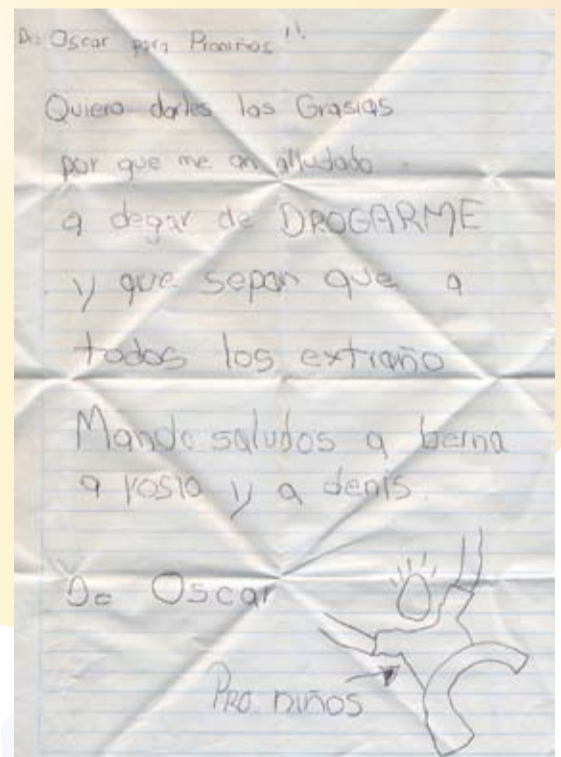 De Oscar para Proniños !!
Quiero darles las Grasias
por que me an alludado
a degar de DROGARME
y que sepan que a
todos los extraño
Mando saludos a berna
a rosio y a denis.
De Oscar
PRO NIÑOS